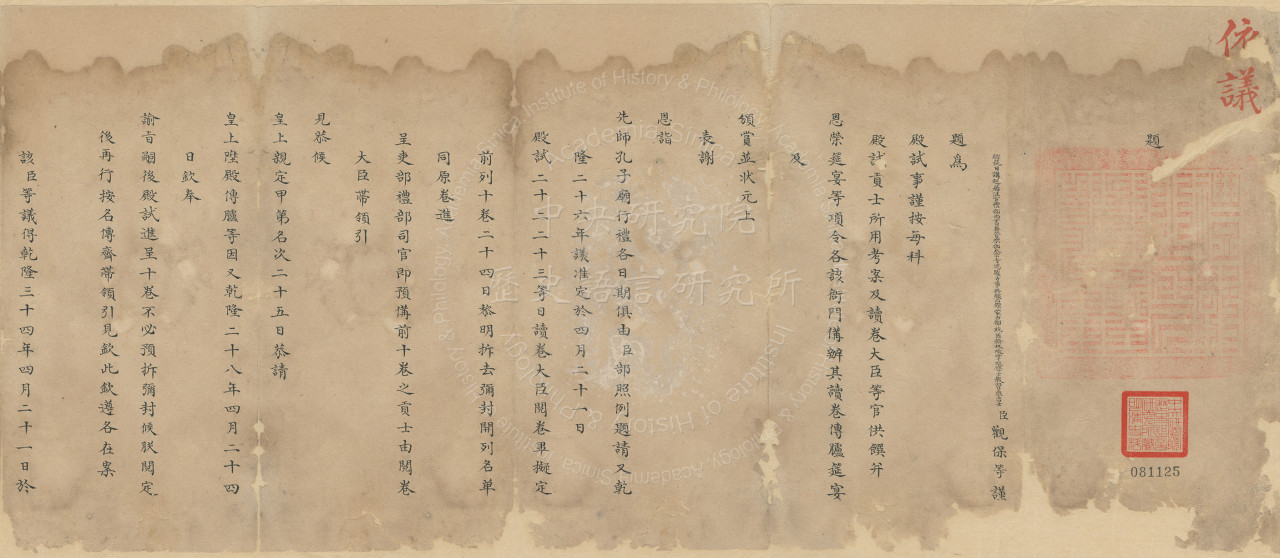 依議
題
臣觀保等謹
題為
殿試事謹按每科
殿試貢士所用考案及讀卷大臣等官供饌并
恩榮筵宴等項令各該衙門備辦其讀卷傳臚筵宴
及
頒賞並狀元上
表謝
恩詣
先師孔子廟行禮各日期俱由臣部照例題請又乾
隆二十六年議准定於四月二十一日
殿試二十二二十三等日讀卷大臣閱卷畢擬定
前列十卷二十四日黎明拆去彌封開列名單
同原卷進
呈吏部禮部司官即預備前十卷之貢士由閱卷
大臣帶領引
見恭候
皇上親定甲第名次二十五日恭請
皇上陞殿傳臚等因又乾隆二十八年四月二十四
日欽奉
諭旨嗣後殿試進呈十卷不必預拆彌封候朕閱定
後再行按名傳齊帶領引見欽此欽遵各在案
該臣等議得乾隆三十四年四月二十一日於
中央研究院
歷史語言研究所
Institute of History & Philology, Academia Sinica
081125